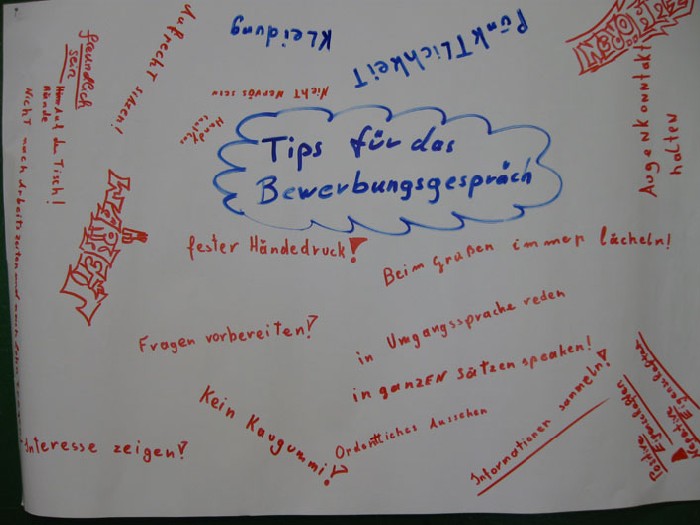 Tips für das
Bewerbungsgespräch
Kleidung
PünKTLichkeiT
Nicht Nervös sein
Aufrecht sitzen!
freundlich
sein
Hände
Nicht nach Arbeitszeiten und
Augenkonntakt
halten
fester Händedruck!
Beim Grüßen immer lächeln!
Fragen vorbereiten!
in Umgangssprache reden
in ganzEN Sätzen speaken!
Kein Kaugummi!
Ordentliches Aussehen
Informationen sammeln!
Interesse zeigen!
Positive
Eigenschaften
Negative
Eigenschaften